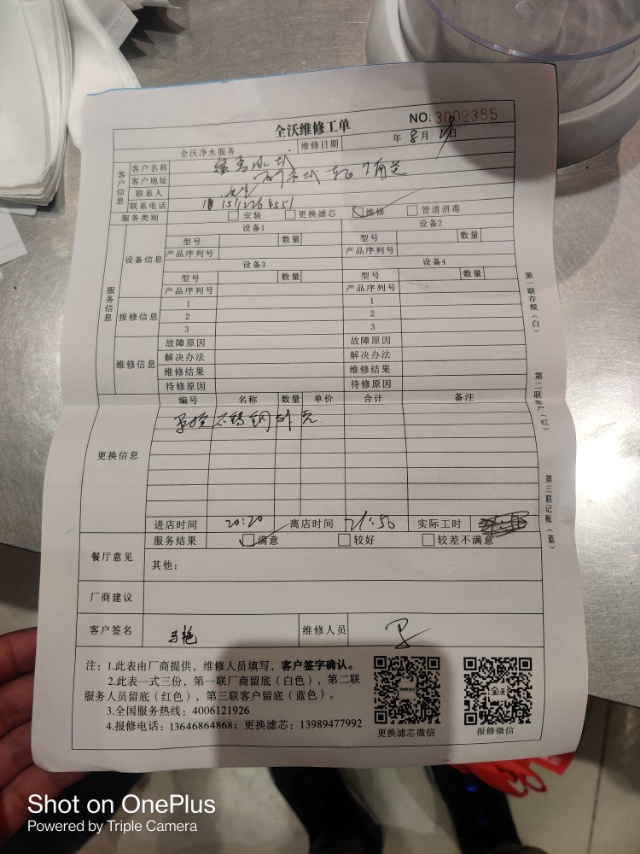 全沃维修工单
NO. 3002355
全沃净水服务 维修日期 年 8 月 日
客户信息
客户名称
客户地址
联系人
联系电话
服务类别 安装 更换滤芯 维修 管道消毒
服务信息
设备信息
设备1 设备2
型号 数量 型号 数量
产品序列号 产品序列号
设备3 设备4
型号 数量 型号 数量
产品序列号 产品序列号
报修信息
1 1
2 2
3 3
维修信息
故障原因 故障原因
解决办法 解决办法
维修结果 维修结果
待修原因 待修原因
更换信息
编号 名称 数量 单价 合计 备注
不锈钢外壳
进店时间 20:20 离店时间 21:50 实际工时
服务结果 满意 较好 较差不满意
餐厅意见 其他:
厂商建议
客户签名 马艳 维修人员
注:1.此表由厂商提供,维修人员填写,客户签字确认。
2.此表一式三份,第一联厂商留底(白色),第二联
服务人员留底(红色),第三联客户留底(蓝色)。
3.全国服务热线:4006121926
4.报修电话:13646864868;更换滤芯:13989477992
更换滤芯微信 报修微信
第一联存根(白)
第二联(红)
第三联记账(蓝)
Shot on OnePlus
Powered by Triple Camera